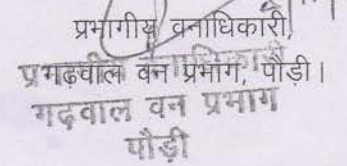 प्रभागीय वनाधिकारी,
गढ़वाल वन प्रभाग, पौड़ी।
गढ़वाल वन प्रभाग
पौड़ी